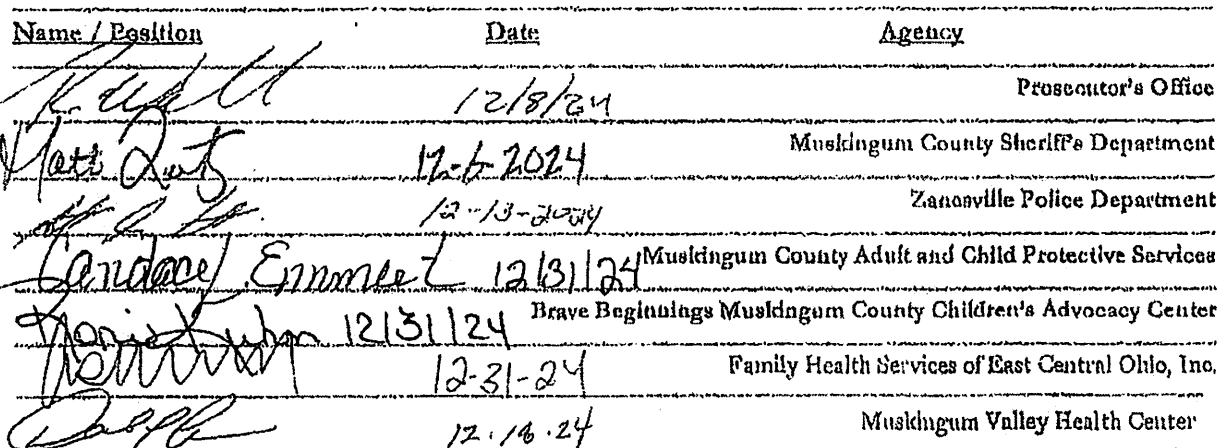 Name / Position Date Agency
12/8/24 Prosecutor's Office
Matt Lutz 12-6-2024 Muskingum County Sheriff's Department
12-13-2024 Zanesville Police Department
Candace Emmert 12/31/24 Muskingum County Adult and Child Protective Services
12/31/24 Brave Beginnings Muskingum County Children's Advocacy Center
12-31-24 Family Health Services of East Central Ohio, Inc.
Muskingum Valley Health Center